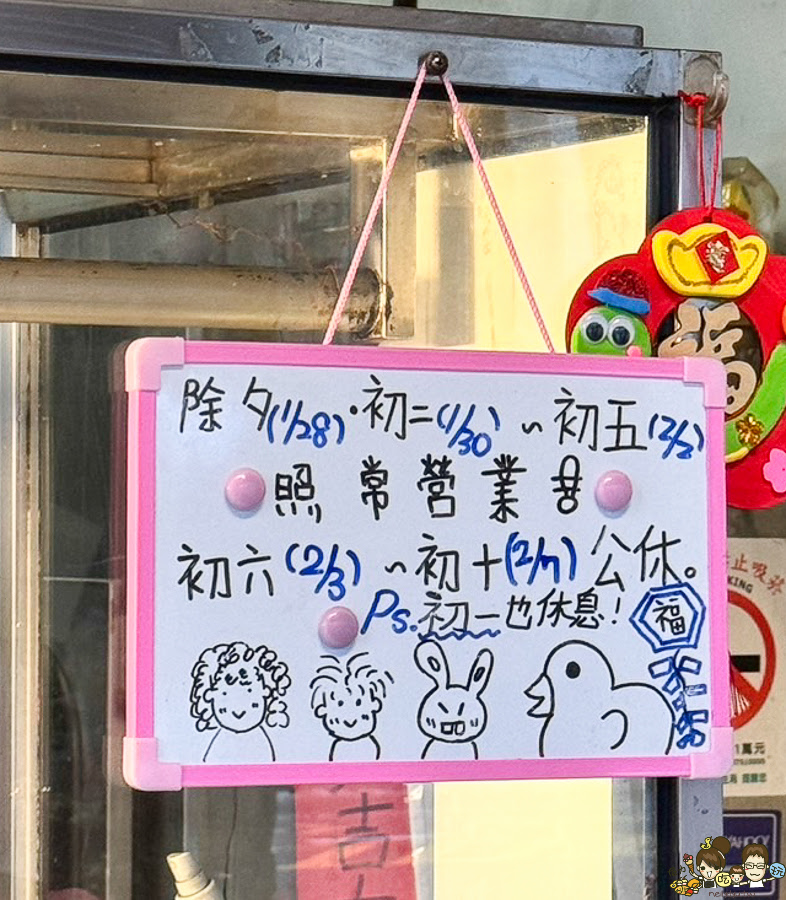 除夕(1/28)·初二(1/30)~初五(2/2)
照常營業
初六(2/3)~初十(2/7)公休。
Ps.初一也休息!
福
福
止吸菸
KING
1萬元
YAHOO!
吉
吃
玩